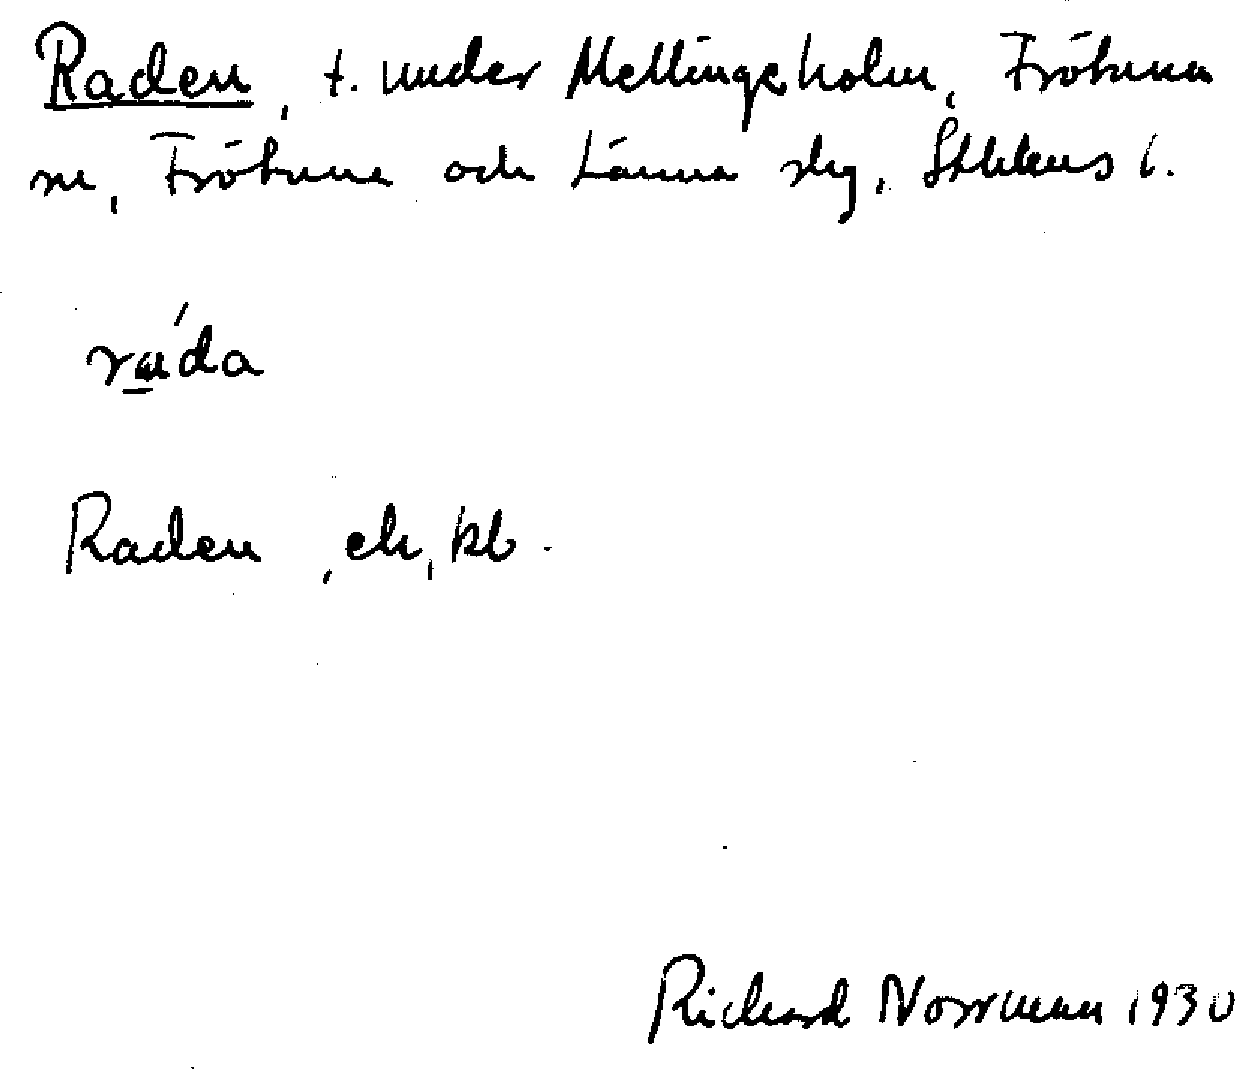 Raden, t. under Mellingeholm, Frötuna
sn, Frötuna och Länna slg, Sthlms l.
Raden, ek, kb.
Richard Norrman 1930